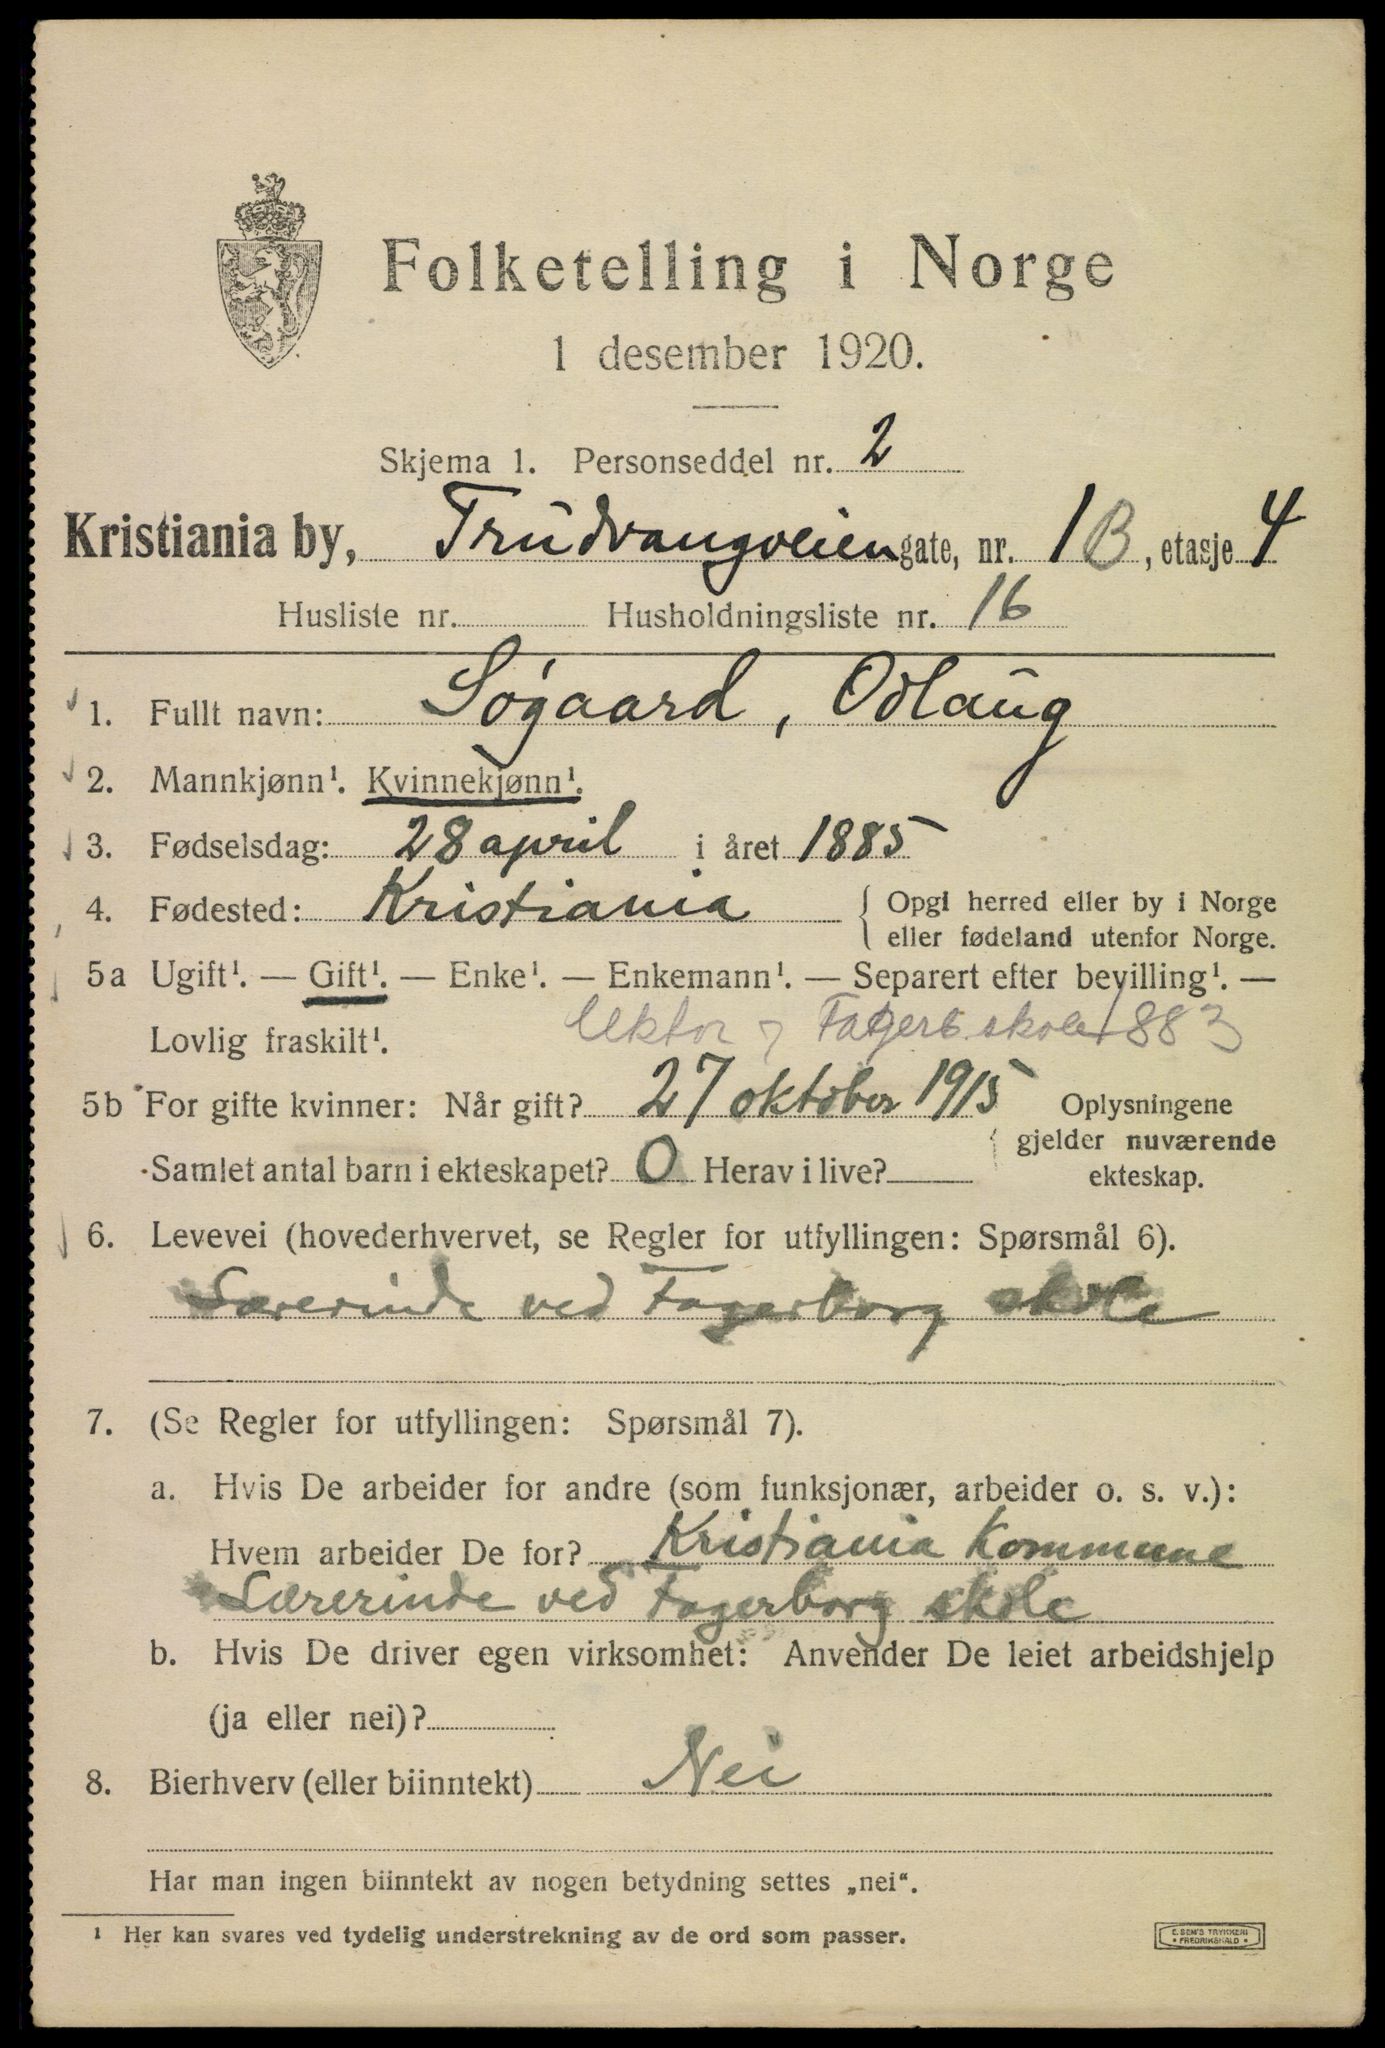 Folketelling i Norge
1 desember 1920.
Skjema 1. Personseddel nr. 2
Kristiania by, Trudvangveien gate, nr. 1B, etasje 4
Husliste nr. Husholdningsliste nr. 16
1. Fullt navn: Søgaard, Odlaug
2. Mannkjønn¹. Kvinnekjønn¹.
3. Fødselsdag: 28 april i året 1885
4. Fødested: Kristiania { Opgi herred eller by i Norge
eller fødeland utenfor Norge.
5a Ugift¹. — Gift¹. — Enke¹. — Enkemann¹. — Separert efter bevilling¹. —
Lovlig fraskilt¹. skole 1883
5b For gifte kvinner: Når gift? 27 oktober 1915
Samlet antal barn i ekteskapet? 0 Herav i live?
Oplysningene
gjelder nuværende
ekteskap.
6. Levevei (hovederhvervet, se Regler for utfyllingen: Spørsmål 6).
Lærerinde ved Fagerborg skole
7. (Se Regler for utfyllingen: Spørsmål 7).
a. Hvis De arbeider for andre (som funksjonær, arbeider o. s. v.):
Hvem arbeider De for? Kristiania Kommune
Lærerinde ved Fagerborg skole
b. Hvis De driver egen virksomhet: Anvender De leiet arbeidshjelp
(ja eller nei)?
8. Bierhverv (eller biinntekt) Nei
Har man ingen biinntekt av nogen betydning settes „nei“.
¹ Her kan svares ved tydelig understrekning av de ord som passer.
E. SEM'S TRYKKERI
• FREDRIKSHALD •